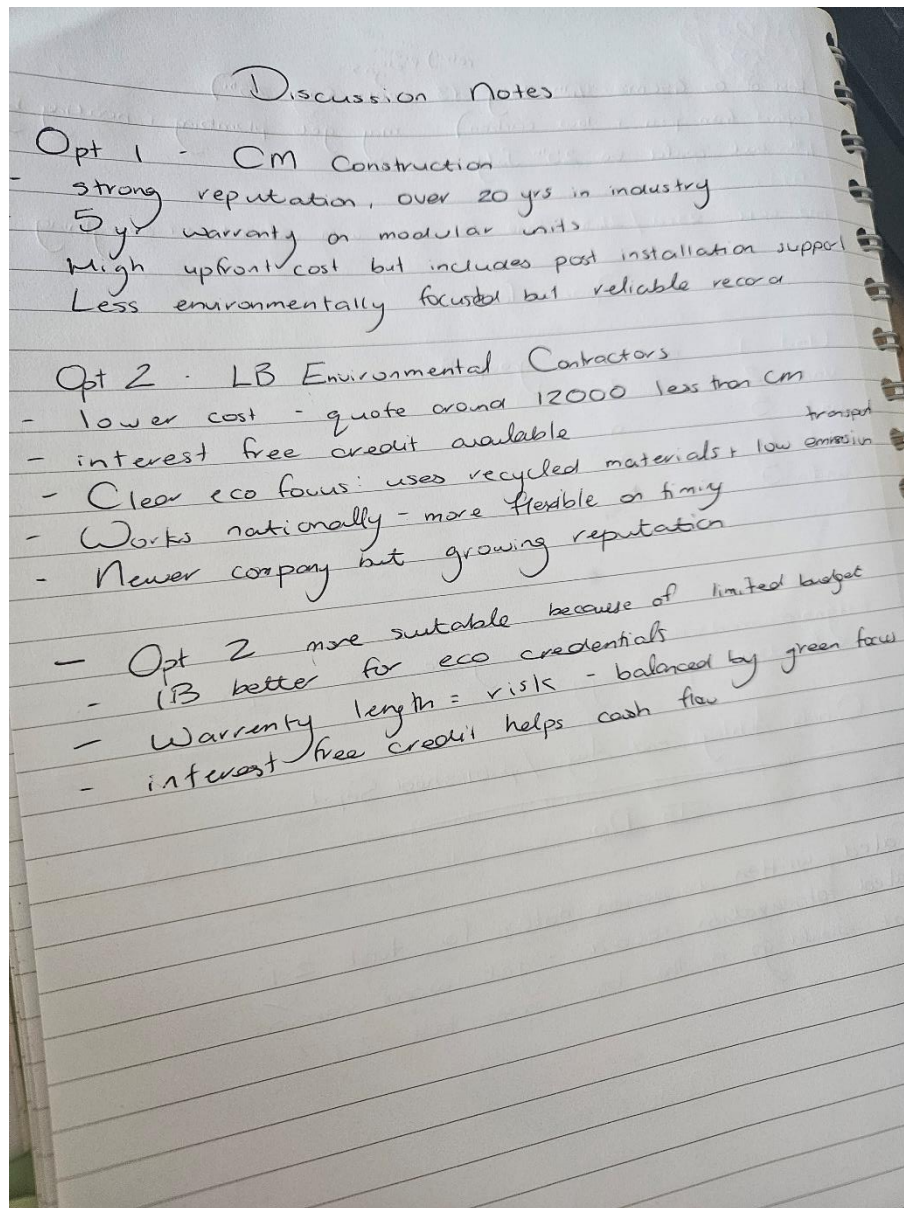 Discussion Notes
Opt 1 - CM Construction
- strong reputation, over 20 yrs in industry
5 yr warranty on modular units
High upfront cost but includes post installation support
Less environmentally focused but reliable record
Opt 2 - LB Environmental Contractors
- lower cost - quote around 12000 less than CM
- interest free credit available
- Clear eco focus: uses recycled materials + low emission transport
- Works nationally - more flexible on timing
- Newer company but growing reputation
- Opt 2 more suitable because of limited budget
- LB better for eco credentials
- Warrenty length = risk - balanced by green focus
- interest free credit helps cash flow